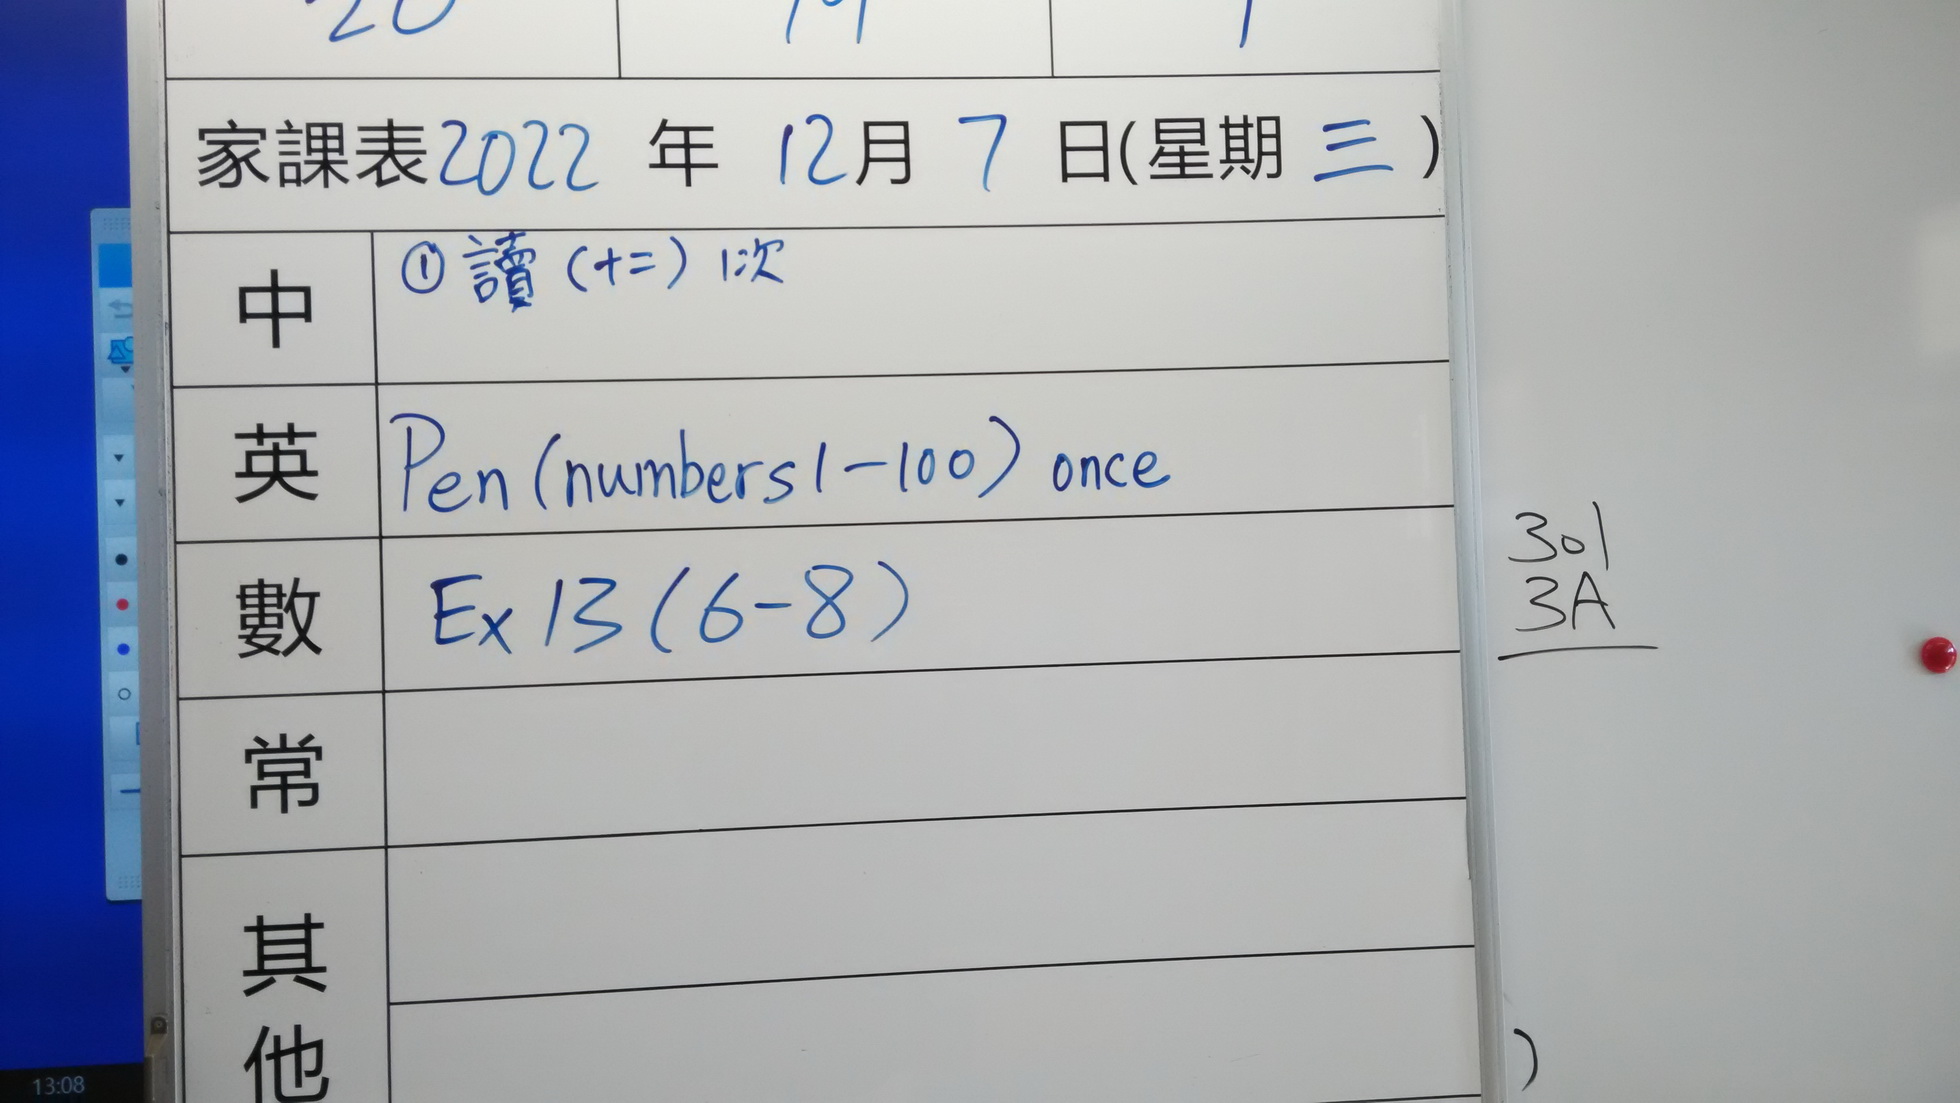 20 19 1
家課表2022 年 12月 7 日(星期 三 )
中 ① 讀 (十二) 1次
英 Pen (numbers 1-100) once
數 Ex 13 (6-8)
常
其
他
301
3A
)
13:08